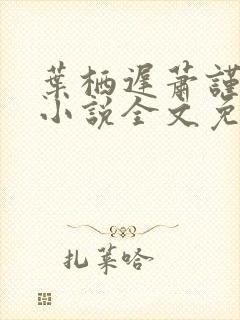 葉栖遲蕭謹
小說全文免
扎葉哈